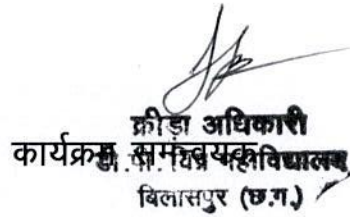 क्रीड़ा अधिकारी
कार्यक्रम समन्वयक
महाविद्यालय
बिलासपुर (छ.ग.)